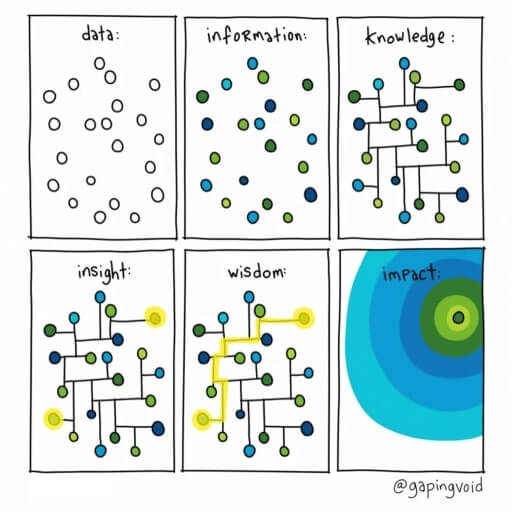 data:
information:
knowledge:
insight:
wisdom:
impact:
@gapingvoid